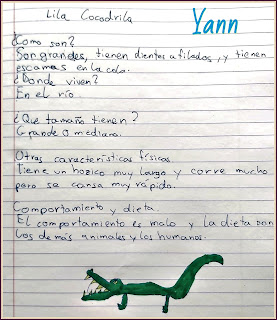 Lila Cocodrila
Yann
¿Como son?
Son grandes, tienen dientes afilados, y tienen
escamas en la cola.
¿Donde viven?
En el río.
¿Que tamañ tienen?
Grande o mediano.
Otras características físicas
Tiene un hozico muy largo y corre mucho
pero se cansa muy rápido.
Comportamiento y dieta
El comportamiento es malo y la dieta son
los demás animales y los humanos.